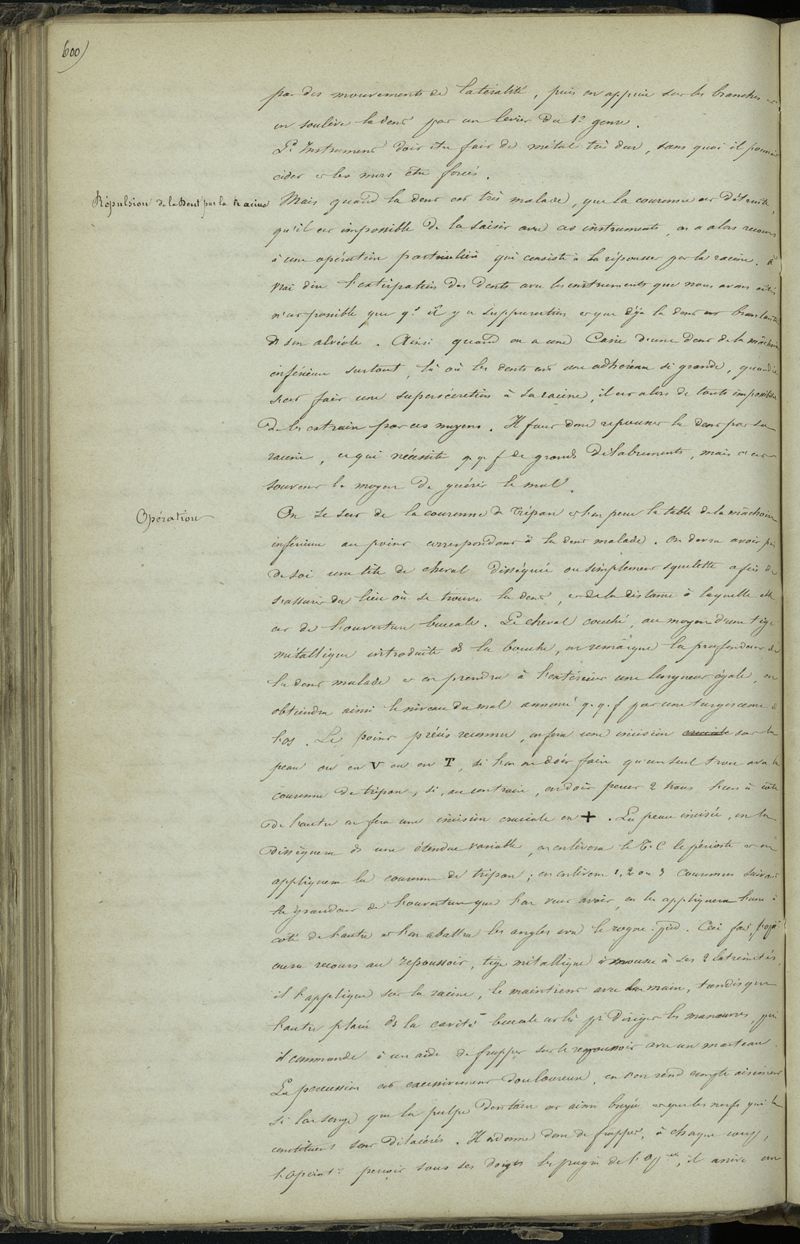 600)
par des mouvements de latéralité, puis on appuie sur les branches et
on soulève la dent par un levier du 1er genre.
L'Instrument doit être fait de métal très dur, sans quoi il pourrait
céder et les murs être forcés.
Répulsion de la Dent par la racine
Mais quand la dent est très malade, que la couronne est détruite,
qu'il est impossible de la saisir avec ces instruments, on a alors recours
à une opération particulière qui consiste à la repousser par la racine. à
vrai dire l'extirpation des dents avec les instruments que nous avons cités
n'est possible que qd il y a suppuration et que déjà la dent est branlante
ds son alvéole. Ainsi quand on a une Carie d'une dent de la mâchoire
inférieure surtout, là où les dents ont une adhérence si grande, quand il
s'est fait une supersécrétion à sa racine, il est alors de toute impossibilité
de les extraire par ces moyens. Il faut donc repousser la dent par sa
racine, ce qui nécessite q.q.f de grands délabrements, mais c'est
souvent le moyen de guérir le mal.
Opération
On se sert de la couronne de trépan et l'on perce la table de la mâchoire
inférieure au point correspondant à la dent malade. On devra avoir près
de soi une tête de cheval disséquée ou simplement squelette afin de
s'assurer du lieu où se trouve la dent, et de la distance à laquelle elle
est de l'ouverture buccale. Le cheval couché, au moyen d'une tige
métallique introduite ds la bouche, on remarque la profondeur de
la dent malade et on prendra à l'extérieur une longueur égale, on
obtiendra ainsi le niveau du mal annoncé q.q.f par une turgescence de
l'os. Le point précis reconnu, on fera une incision cruciale sur la
peau ou en V ou en T, si l'on ne doit faire qu'un seul trou avec la
couronne de trépan, si, au contraire, on doit percer 2 trous l'un à côté
de l'autre on fera une incision cruciale en +. La peau incisée, on la
disséquera ds une étendue variable, on enlèvera le T.C le périoste et on
appliquera la couronne de trépan; on enlèvera 1, 2 ou 3 couronnes suivant
la grandeur de l'ouverture que l'on veut avoir, on les appliquera l'une à
côté de l'autre et l'on abattra les angles avec le rogne-pied. Ceci fait, l'opé
aura recours au repoussoir, tige métallique à mousse à ses 2 extrémités,
il l'applique sur la racine, le maintient avec une main, tandis que
l'autre placée ds la cavité buccale est là pr diriger les manœuvres, puis
il commande à un aide de frapper sur le repoussoir avec un marteau.
La percussion est excessivement douloureuse, on s'en rend compte aisément
si l'on songe que la pulpe dentaire est ainsi broyée et que les nerfs qui la
constituent sont dilacérés. Il ordonne donc de frapper, à chaque coup,
l'opérat: perçoit sous ses doigts les progrès de l'opon, il arrive un